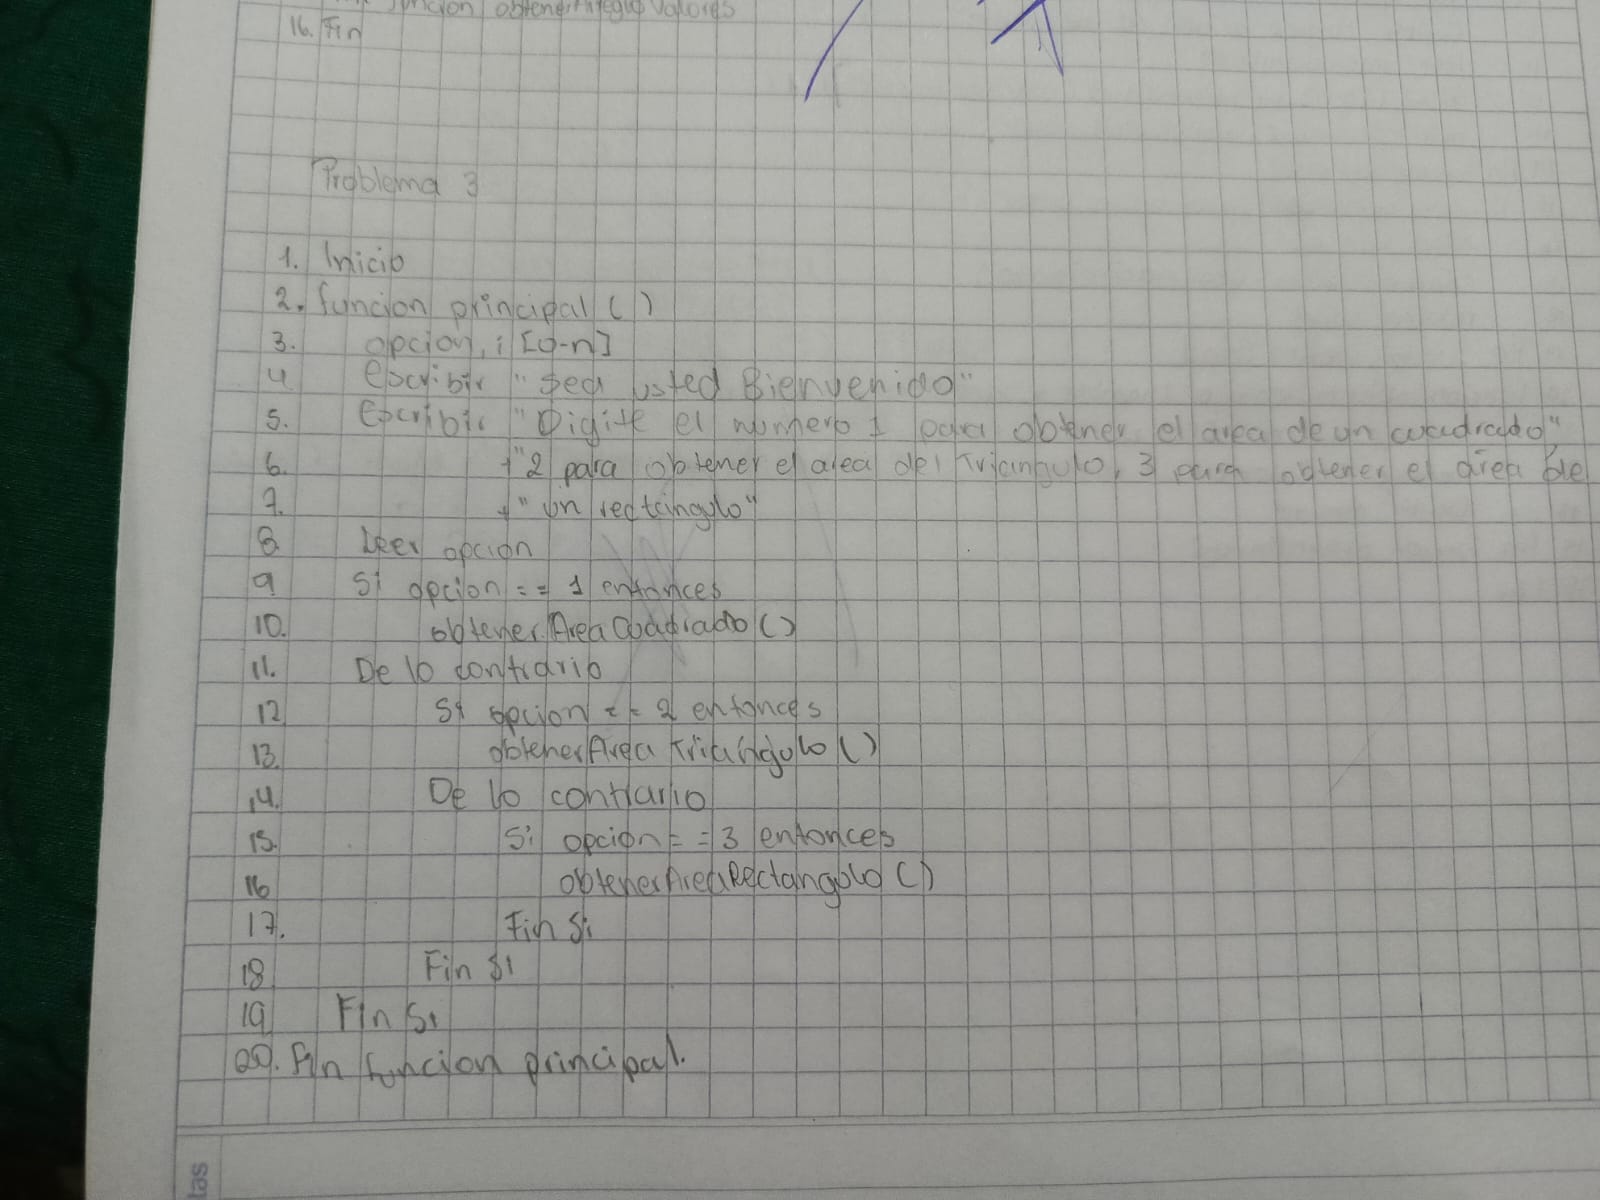 funcion obtenerArreglo valores
16. Fin
Problema 3
1. Inicio
2. funcion principal ( )
3. opcion, i [0-n]
4 escribir "Sea usted Bienvenido"
5. Escribir "Digite el numero 1 para obtener el area de un cuadrado"
6. +"2 para obtener el area del triangulo, 3 para obtener el área de
7. +" un rectángulo"
8 Leer opcion
9 Si opcion == 1 entonces
10. obtenerAreaCuadrado ( )
11. De lo contrario
12 Si opcion == 2 entonces
13. obtenerAreaTriangulo ( )
14. De lo contrario
15. Si opcion == 3 entonces
16 obtenerAreaRectangulo ( )
17. Fin Si
18 Fin Si
19 Fin Si
20. fin funcion principal.
tas